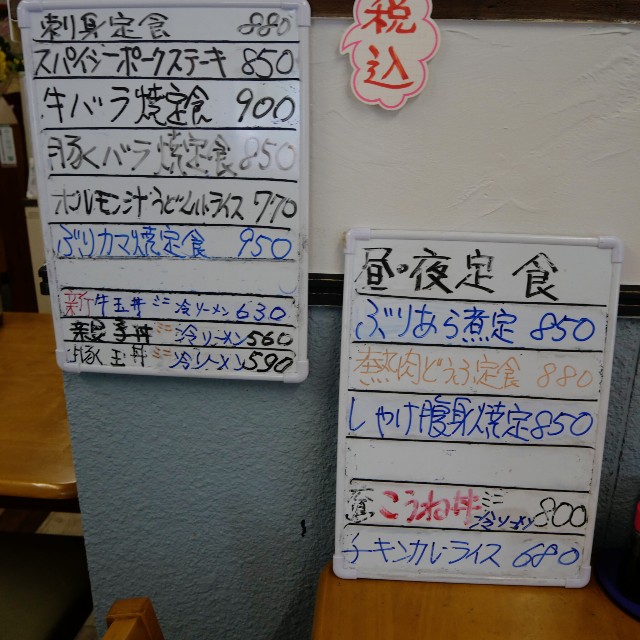 刺身定食 880
スパイシーポークステーキ 850
牛バラ焼定食 900
豚バラ焼定食 850
ホルモン汁うどんorライス 770
ぶりカマ焼定食 950
新 牛玉丼 ミニ冷ラーメン 630
親子丼 ミニ冷ラーメン 560
豚玉丼 ミニ冷ラーメン 590
税込
昼・夜定食
ぶりあら煮定 850
しゃけ腹身焼定 850
こうね丼 ミニ冷ラーメン 800
チキンカレーライス 680